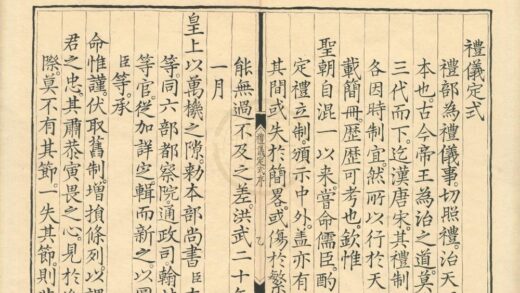 禮儀定式
禮部為禮儀事。切照禮。治天
本也。古今帝王為治之道。莫
三代而下。迄漢唐宋。其禮制
各因時制宜。然所以行於天
載簡冊歷歷可考也。欽惟
聖朝自混一以來。嘗命儒臣酌
定禮立制。頒示中外。蓋亦有
其間或失於簡畧。或傷於繁
禮儀定式序
能無過不及之差洪武二十年
一月
皇上以萬機之隙。勅本部尚書臣
等。同六部都察院通政司翰
等官從加詳定。輯而新之以圖
臣等。承
命惟謹。伏取舊制增損條列。以
君之忠。其肅恭寅畏之心。見於
際。莫不有其節。一失其節。則